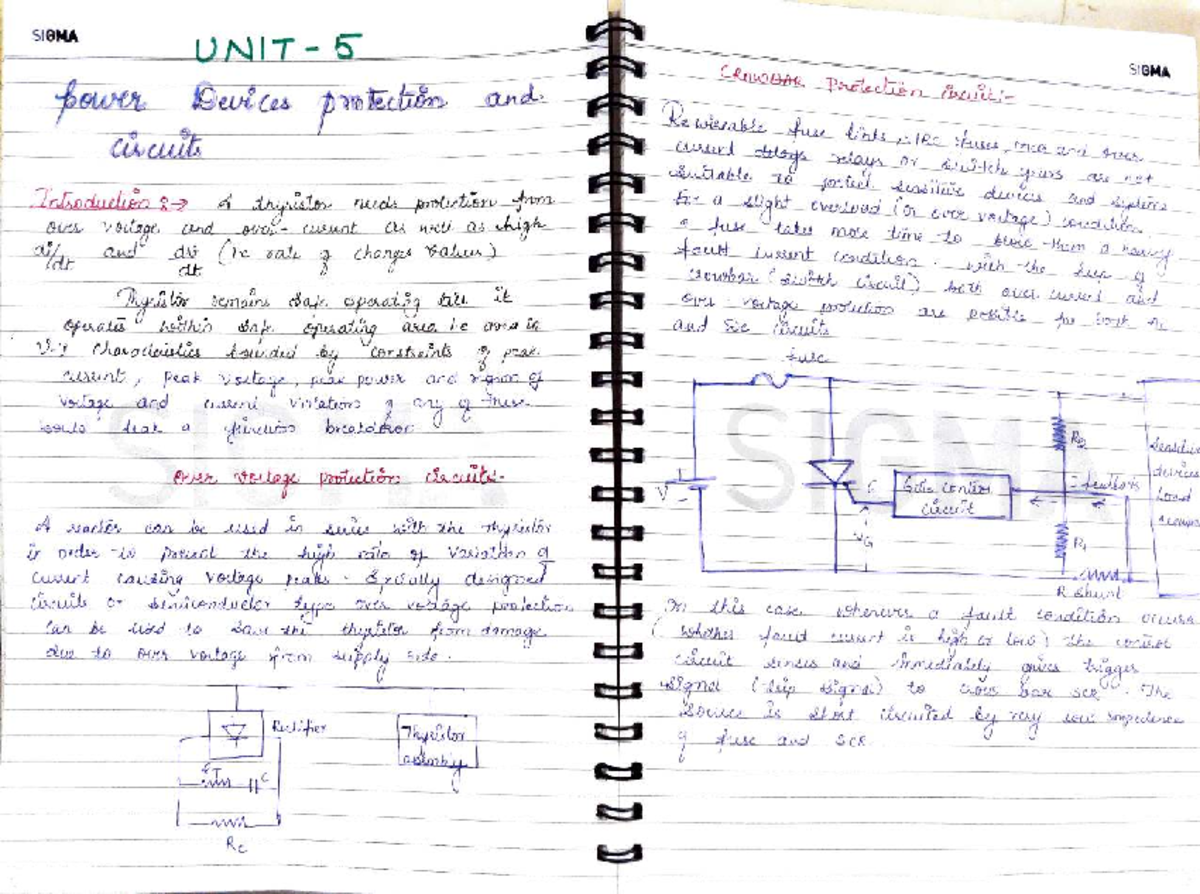 SIGMA
UNIT - 5
Power Devices protection and
circuits
Introduction :→ A thyristor needs protection from
over voltage and over-current as well as high
di/dt and dv/dt (ie rate of changes values)
Thyristor remains safe operating till it
operates within safe operating area ie area in
V-I characteristics bounded by constraints of peak
current, peak voltage, peak power and region of
voltage and current violation of any of these
would leak a junction breakdown
Over voltage protection circuits:-
A reactor can be used in series with the thyristor
in order to prevent the high rate of variation of
current causing voltage peaks. Specially designed
circuits or semiconductor type over voltage protection
can be used to save the thyristor from damage
due to over voltage from supply side.
Rectifier
Thyristor
assembly
C
Rc
SIGMA
CROWBAR Protection circuit:-
Rewirable fuse links, HRC fuses, MCB and over
current relays or switch gears are not
suitable to protect sensitive devices and systems
For a slight overload (or over voltage) condition,
a fuse takes more time to than a heavy
fault current condition. With the help of
crowbar (switch circuit) both over current and
over-voltage protection are possible for both
and circuits
fuse
V
G
VG
Gate control
circuit
R2
R1
R shunt
Sensitive
devices
Load
In this case whenever a fault condition occurs
(whether fault current is high or low) the control
circuit senses and immediately gives trigger
signal (trip signal) to crow bar SCR. The
source is short circuited by very low impedence
of fuse and SCR.